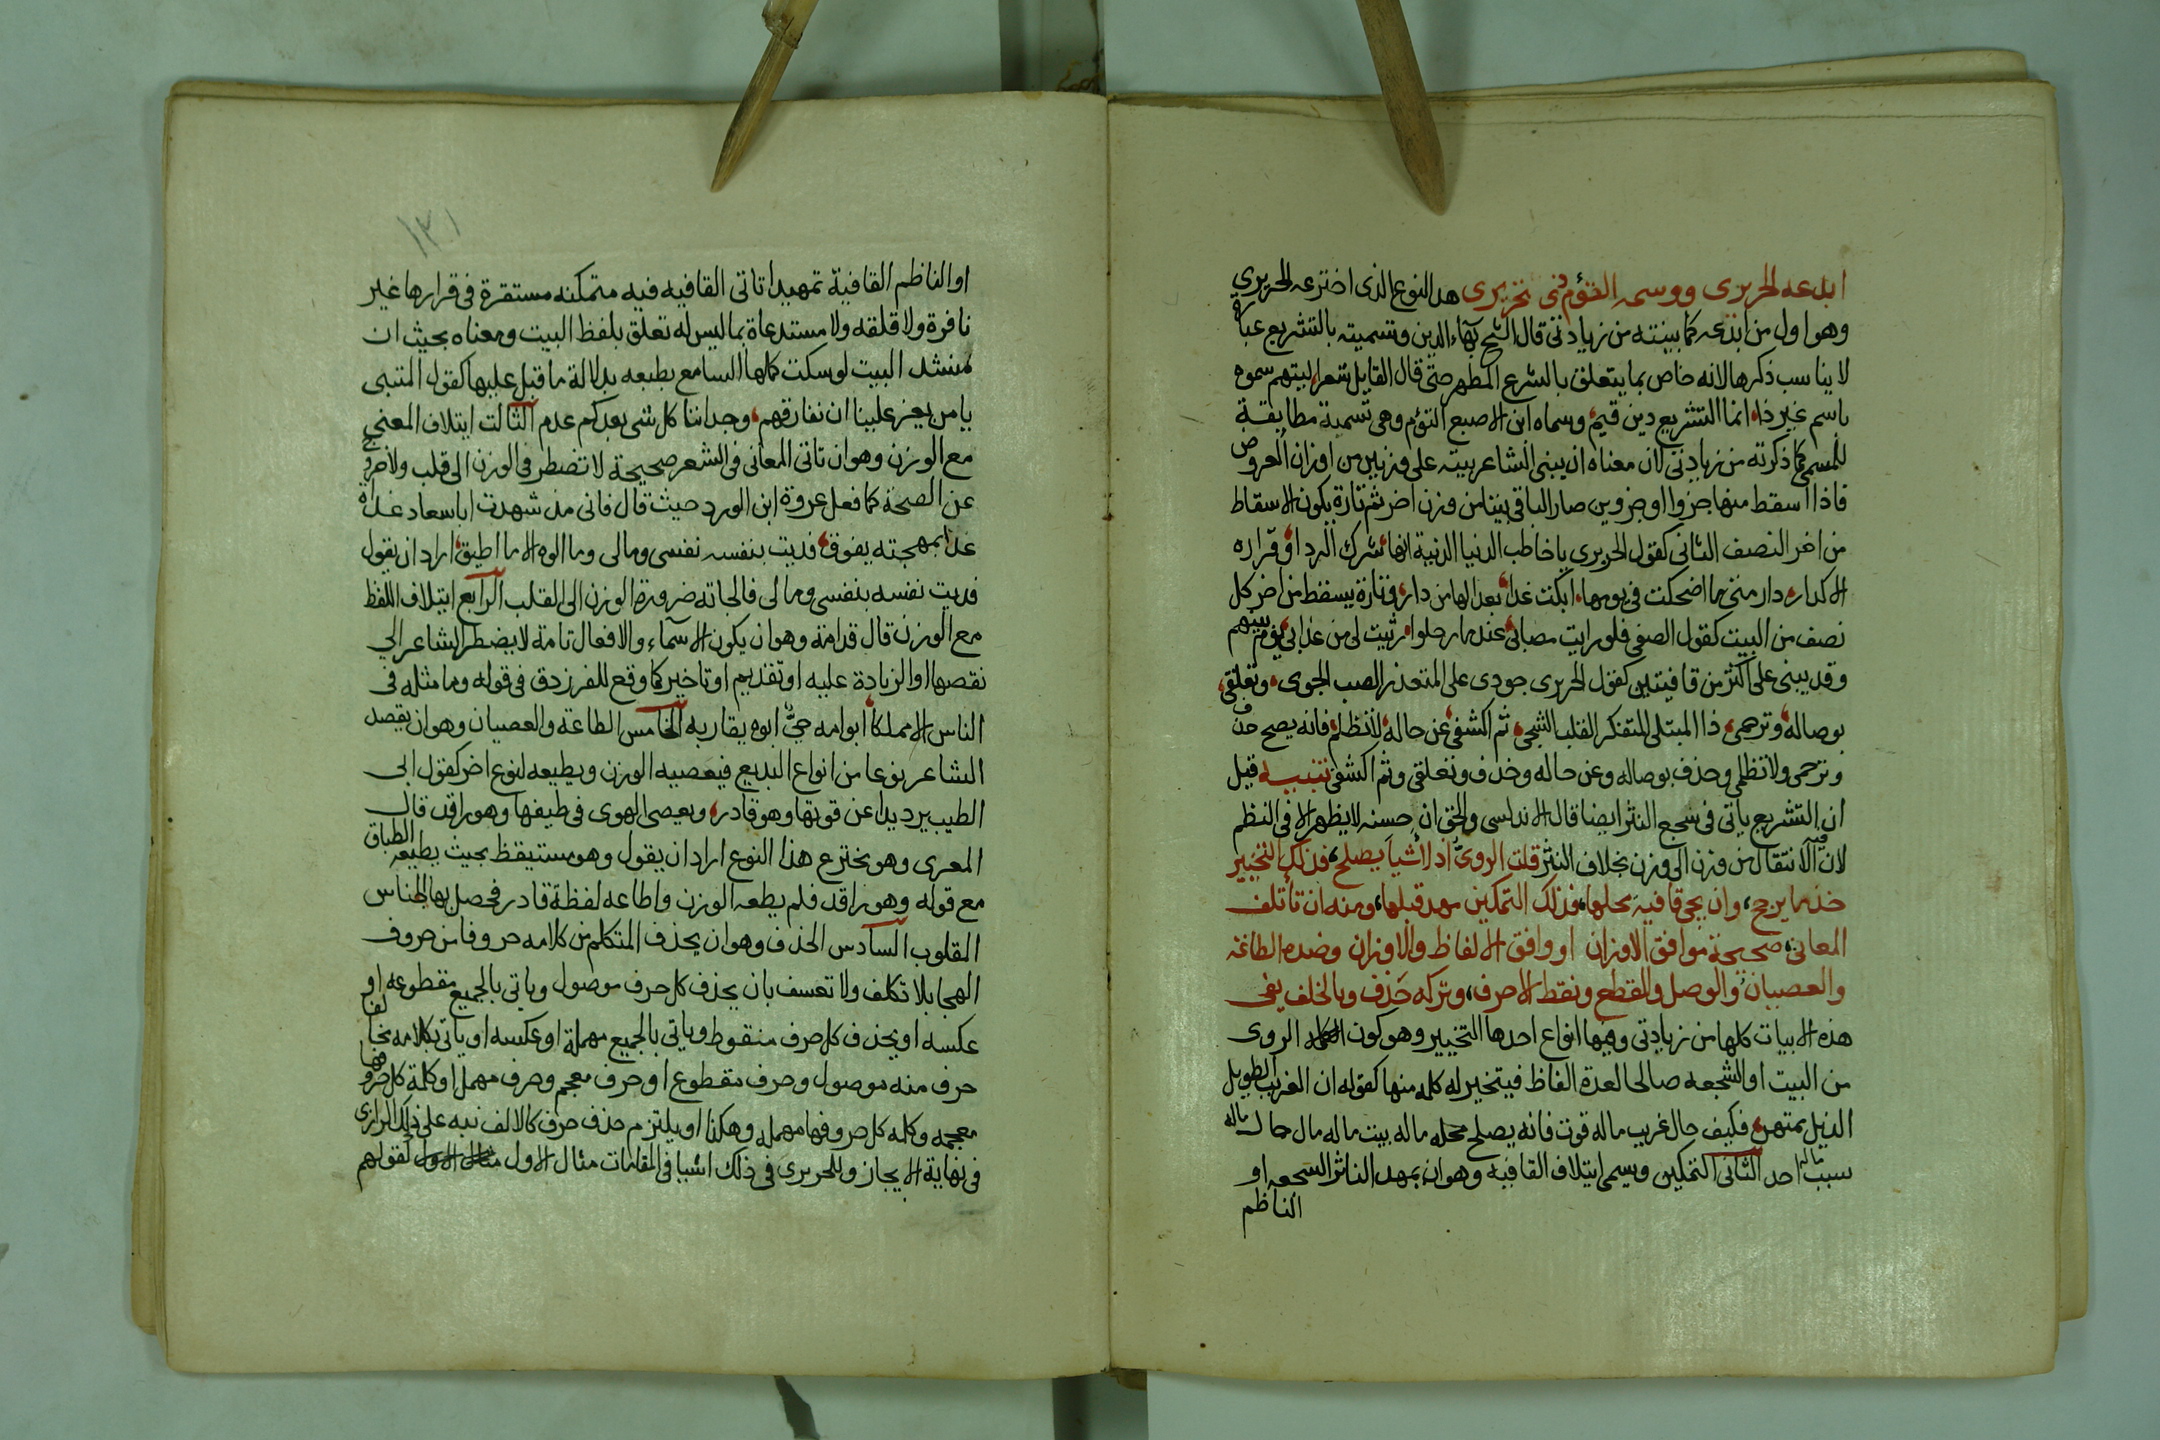 ابدعه الحريرى ووسمه التؤم فى تحريرى هذا النوع الذى اخترعه الحريري
وهو اول من ابتدعه كما بينته من زيادتى قال الشيخ بهاء الدين وتسميته بالتشريع عبارة
لا يناسب ذكرها لانه خاص بما يتعلق بالشرع المطهر حتى قال القايل شعرا ليتهم سموه
باسم غير ذا انما التشريع دين قيم وسماه ابن الاصبع التؤم وهى تسمية مطابقة
للمسمى كما ذكرته من زيادتى لان معناه ان يبنى الشاعر بيته على وزنين من اوزان العروض
فاذا اسقط منها جزوا او جزوين صار الباقى بيتا من وزن اخر ثم تارة يكون الاسقاط
من اخر النصف الثانى كقول الحريرى يا خاطب الدنيا الدنية انها شرك الردا وقراره
الاكدار دار متى ما اضحكت فى يومها ابكت غدا بعدا لها من دار وتارة يسقط من اخر كل
نصف من البيت كقول الصفى فلو رايت مصابى عندما رحلوا رثيت لى من عذابى يوم بينهم
وقد يبنى على اكثر من قافيتين كقول الحريرى جودى على المتعذر الصب الجوى وتعلقى
بوصاله وترحمى ذا المبتلى المتفكر القلب الشجى ثم اكشفى عن حاله لا تظلم فانه يصح حذف
وترحمى ولا تظلمى وحذف بوصاله وعن حاله وحذف وتعلقى وثم اكشفى تنبيه قيل
ان التشريع ياتى فى سجع النثر ايضا قال الاندلسى والحق ان حسنه لا يظهر الا فى النظم
لان فيه الانتقال من وزن الى وزن بخلاف النثر قلت الروى اذ لاشيا يصلح فذلك التخيير
خذ ما يرجح وان يجى قافية محلها فذلك التمكين مهد قبلها ومنه ان تاتلف
المعانى صحيحة موافق الاوزان او وافق الالفاظ والاوزان وضده الطاغة
والعصيان والوصل والقطع ونقط الاحرف وتركه حذف وبالخلف يفى
هذه الابيات كلها من زيادتى وفيها انواع احدها التخيير وهو كون الروى
من البيت او الشجعه صالحا لعدة الفاظ فيتخير له كله منها كقوله ان الغريب الطويل
الذيل ممتهن فكيف حال غريب ماله قوت فانه يصلح محله ماله بيت ماله مال حال ماله
سبب ماله احد الثانى التمكين ويسمى ايتلاف القافية وهو ان يمهد الناثر السجعه او
الناظم
١٣١
او الناظم القافية تمهيدا تاتى القافيه فيه متمكنه مستقرة فى قرارها غير
نافرة ولا قلقه ولا مستدعاة بما ليس له تعلق بلفظ البيت ومعناه بحيث ان
منشد البيت لو سكت كملها السامع بطبعه بدلالة ما قبل عليها كقول المتنبى
يا من يعز علينا ان نفارقهم وجداننا كل شى بعدكم عدم الثالث ايتلاف المعنى
مع الوزن وهو ان تاتى المعانى فى الشعر صحيحة لا تضطر فى الوزن الى قلب ولا خروج
عن الصحة كما فعل عروة ابن الورد حيث قال فانى من شهدت ابا سعاد غداة
غدا بمهجته يفوق فديت بنفسه نفسى ومالى وما الوه الا ما اطيق اراد ان يقول
فديت نفسه بنفسى ومالى فالجاته ضرورة الوزن الى القلب الرابع ايتلاف اللفظ
مع الوزن قال قدامة وهو ان يكون الاسماء والافعال تامة لا يضطر الشاعر الي
نقصها او الزيادة عليه او تقديم او تاخير كما وقع للفرزدق فى قوله وما مثله فى
الناس الا مملكا ابو امه حى ابوه يقاربه الخامس الطاعة والعصيان وهو ان يقصد
الشاعر نوعا من انواع البديع فيعصيه الوزن ويطيعه لنوع اخر كقول ابى
الطيب يرد يدا عن ثوبها وهو قادر ويعصى الهوى فى طيفها وهو راقد قال
المعرى وهو مخترع هذا النوع اراد ان يقول وهو مستيقظ بحيث يطيعه الطباق
مع قوله وهو راقد فلم يطعه الوزن واطاعه لفظة قادر فحصل بها الجناس
القلوب السادس الحذف وهو ان يحذف المتكلم من كلامه حروفا من حروف
الهجا بلا تكلف ولا تعسف بان يحذف كل حرف موصول وياتى بالجميع مقطوعه او
عكسه او يحذف كل حرف منقوط وياتى بالجميع مهملة او عكسه او ياتى بكلامه مخالفا
حرف منه موصول وحرف مقطوع او حرف معجم وحرف مهمل او كلمة كل حروفها
معجمه وكلمه كل حروفها مهمله وهكذا او يلتزم حذف حرف كالالف نبه على ذلك الرازى
فى نهاية الايجاز وللحريرى فى ذلك اشيا فى المقامات مثال الاول كقولهم